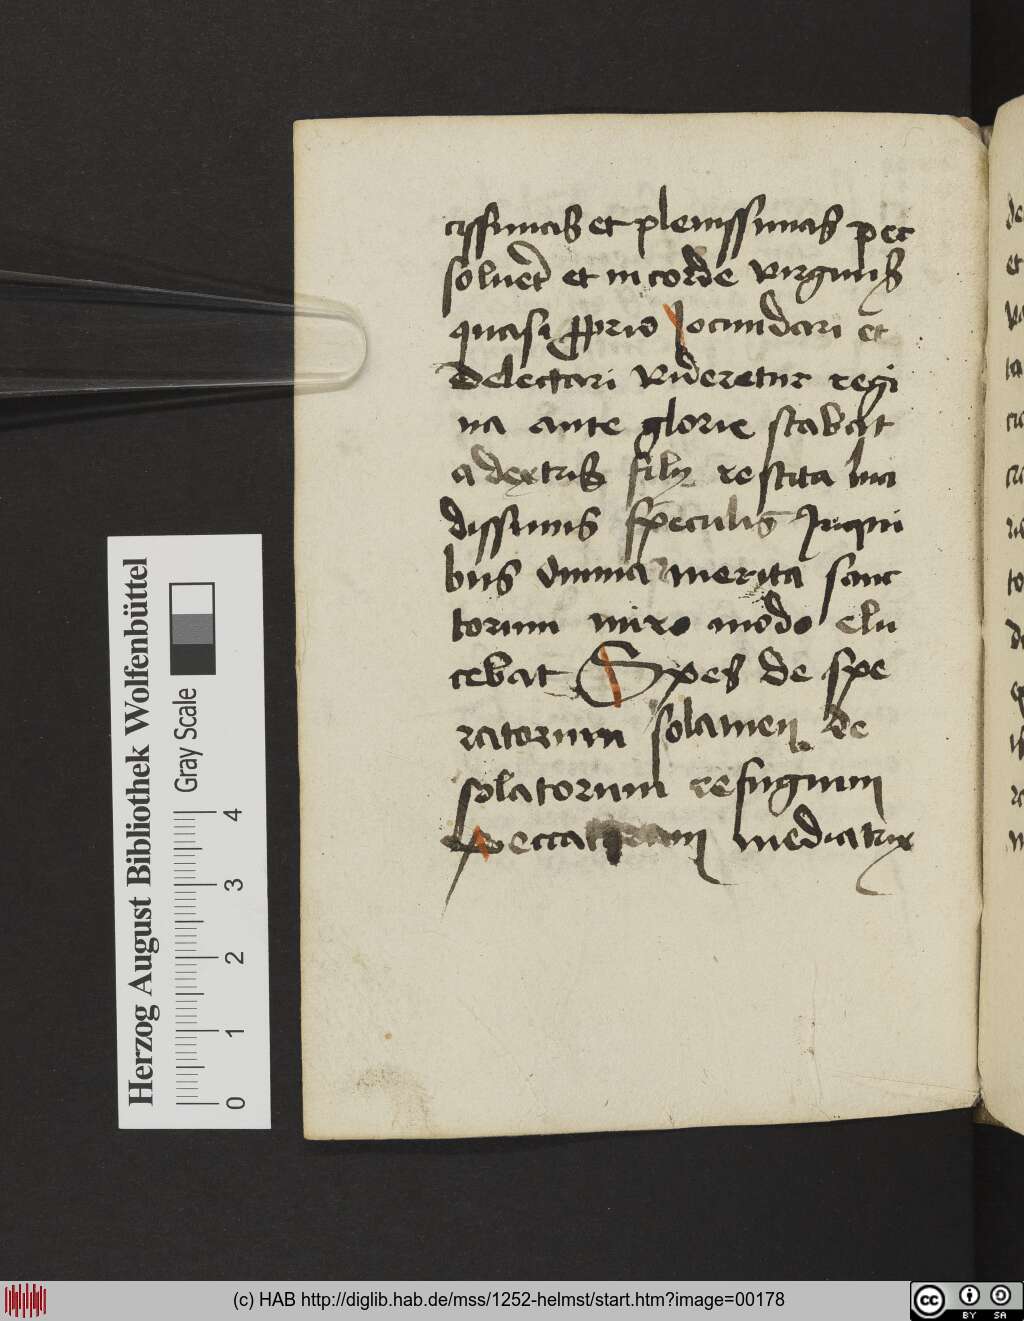 cissimas et plenissimas per
soluer̄t et in corde virginis
quasi ꝓprio Jocundari et
delectari videretur regi
na ante glorie stabat
a dextris filij vestita luci
dissimis speculis In qui
bus omnia merita sanc
torum miro modo elu
cebat Spes de spe
ratorum solamen de
solatorum refugium
peccatorum mediatrix
Herzog August Bibliothek Wolfenbüttel
Gray Scale
0 1 2 3 4
(c) HAB http://diglib.hab.de/mss/1252-helmst/start.htm?image=00178
cc BY SA